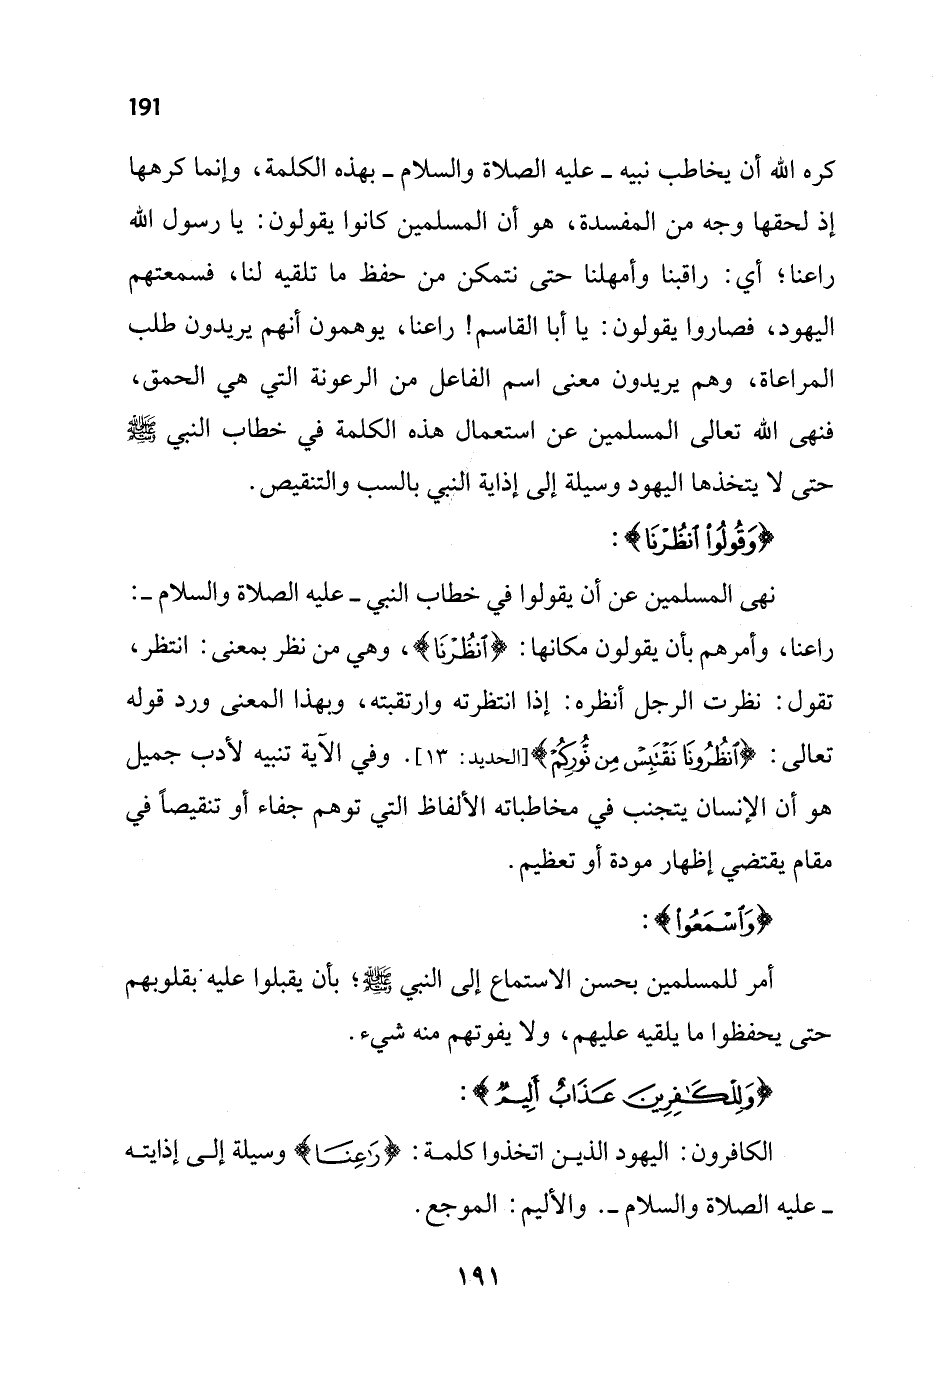 191
كره الله أن يخاطب نبيه ـ عليه الصلاة والسلام ـ بهذه الكلمة، وإنما كرهها
إذ لحقها وجه من المفسدة، هو أن المسلمين كانوا يقولون: يا رسول الله
راعنا؛ أي: راقبنا وأمهلنا حتى نتمكن من حفظ ما تلقيه لنا، فسمعتهم
اليهود، فصاروا يقولون: يا أبا القاسم! راعنا، يوهمون أنهم يريدون طلب
المراعاة، وهم يريدون معنى اسم الفاعل من الرعونة التي هي الحمق،
فنهى الله تعالى المسلمين عن استعمال هذه الكلمة في خطاب النبي ﷺ
حتى لا يتخذها اليهود وسيلة إلى إذاية النبي بالسب والتنقيص.
﴿وَقُولُواْ ٱنظُرْنَا﴾:
نهى المسلمين عن أن يقولوا في خطاب النبي ـ عليه الصلاة والسلام ـ:
راعنا، وأمرهم بأن يقولون مكانها: ﴿ٱنظُرْنَا﴾، وهي من نظر بمعنى: انتظر،
تقول: نظرت الرجل أنظره: إذا انتظرته وارتقبته، وبهذا المعنى ورد قوله
تعالى: ﴿ٱنظُرُونَا نَقْتَبِسْ مِن نُّورِكُمْ﴾[الحديد: ١٣]. وفي الآية تنبيه لأدب جميل
هو أن الإنسان يتجنب في مخاطباته الألفاظ التي توهم جفاء أو تنقيصاً في
مقام يقتضي إظهار مودة أو تعظيم.
﴿وَٱسْمَعُواْ﴾:
أمر للمسلمين بحسن الاستماع إلى النبي ﷺ؛ بأن يقبلوا عليه بقلوبهم
حتى يحفظوا ما يلقيه عليهم، ولا يفوتهم منه شيء.
﴿وَلِلْكَٰفِرِينَ عَذَابٌ أَلِيمٌ﴾:
الكافرون: اليهود الذين اتخذوا كلمة: ﴿رَٰعِنَا﴾ وسيلة إلى إذايته
ـ عليه الصلاة والسلام ـ. والأليم: الموجع.
١٩١